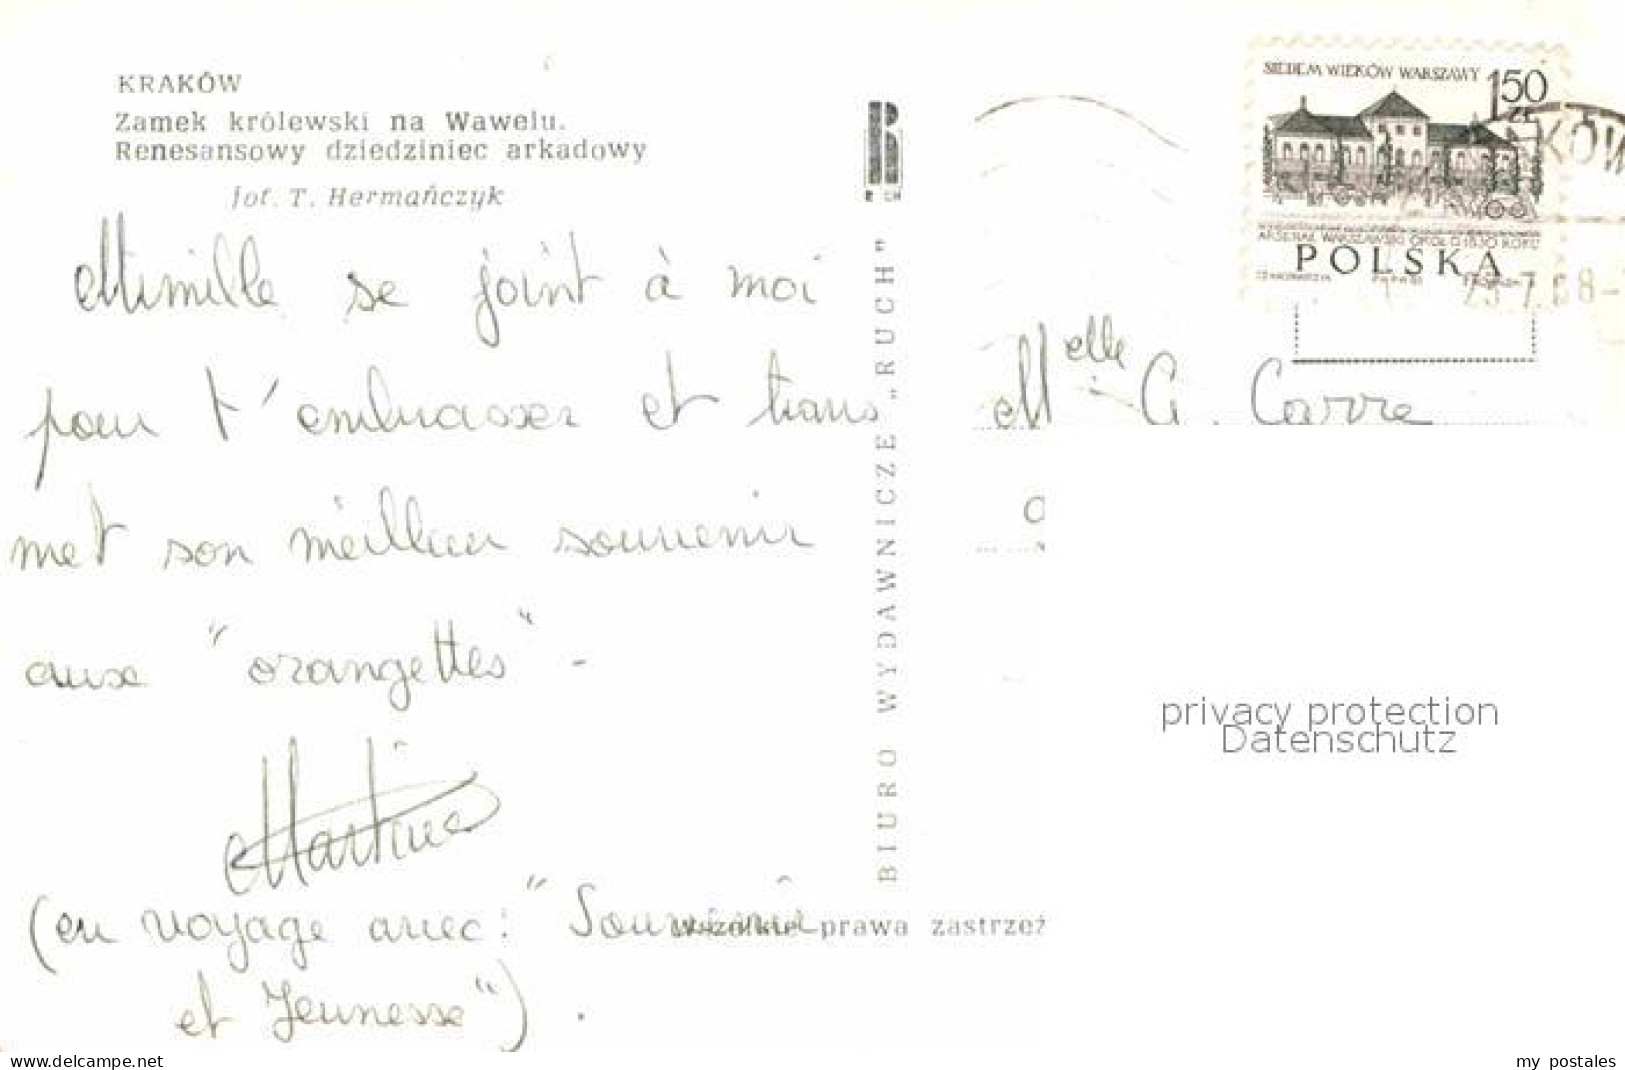 KRAKÓW
Zamek królewski na Wawelu.
Renesansowy dziedziniec arkadowy
fot. T. Hermańczyk
se joint à moi
pour t'embrasser et trans
met son meilleur souvenir
aux "orangettes" -
Martine
(en voyage avec: "Souvenir
et Jeunesse").
BIURO WYDAWNICZE „RUCH"
Wszelkie prawa zastrzeż
SIEDEM WIEKÓW WARSZAWY
150
ZŁ
ARSENAŁ WARSZAWSKI OKOŁO 1830 ROKU
POLSKA
KÓW
7.68-
Melle G. Carre
privacy protection
Datenschutz
www.delcampe.net
my_postales